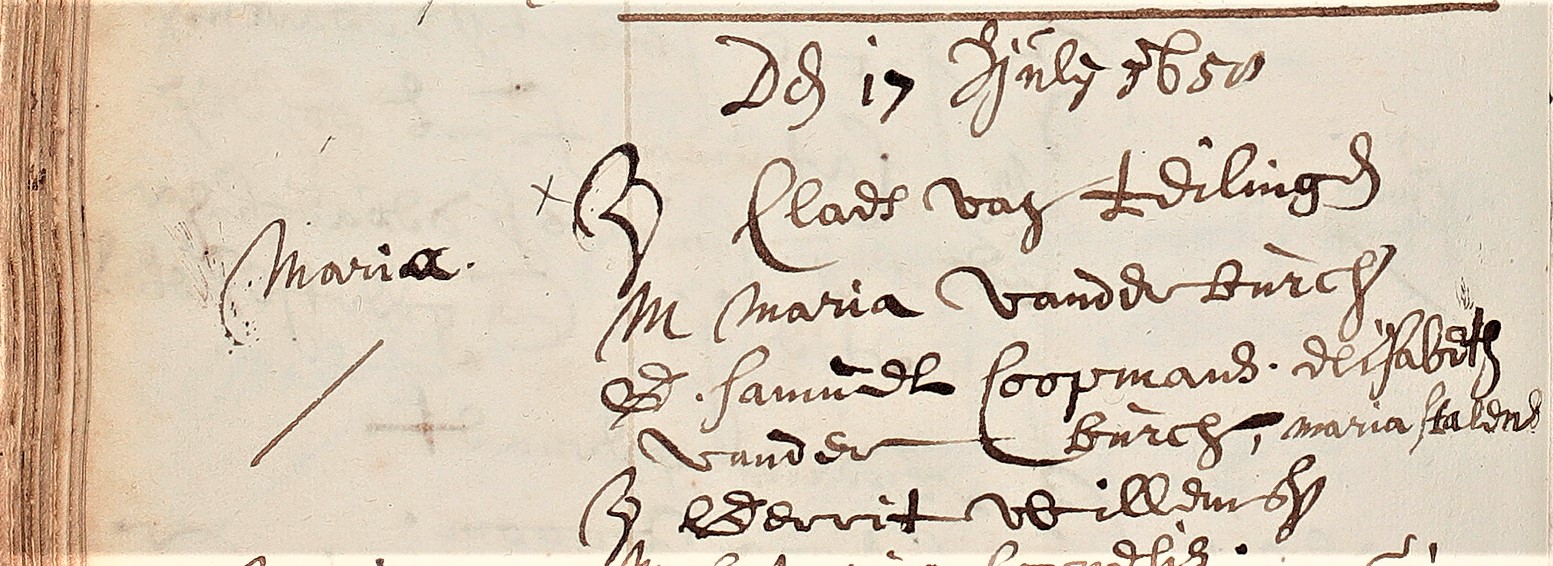 Den 17 July 1650
V Claes van Teilingen
Maria.
M Maria vander burch
G. Samuel Coopmans. elisabeth
vander burch, maria stalens
V Gerrit Willemsz